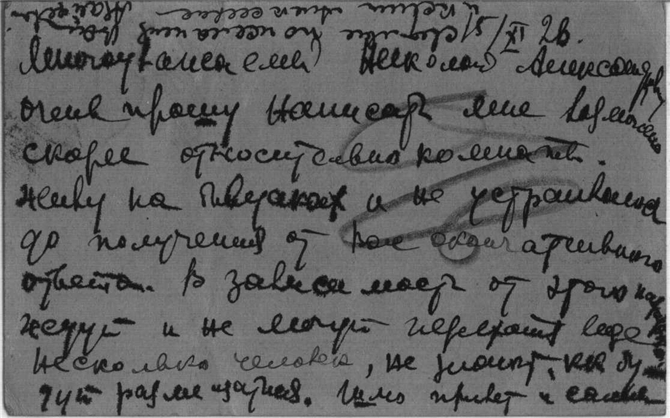 5/IX 26.
Многоуважаемый Николай Александрович
очень прошу написать мне возможно
скорее относительно комнаты.
Живу на и не устраиваюсь
до получения от Вас окончательного
ответа. В зависимость от этого
ждут и не могут переехать ещё
несколько человек, не знают, как бу-
дут размещаться. привет и